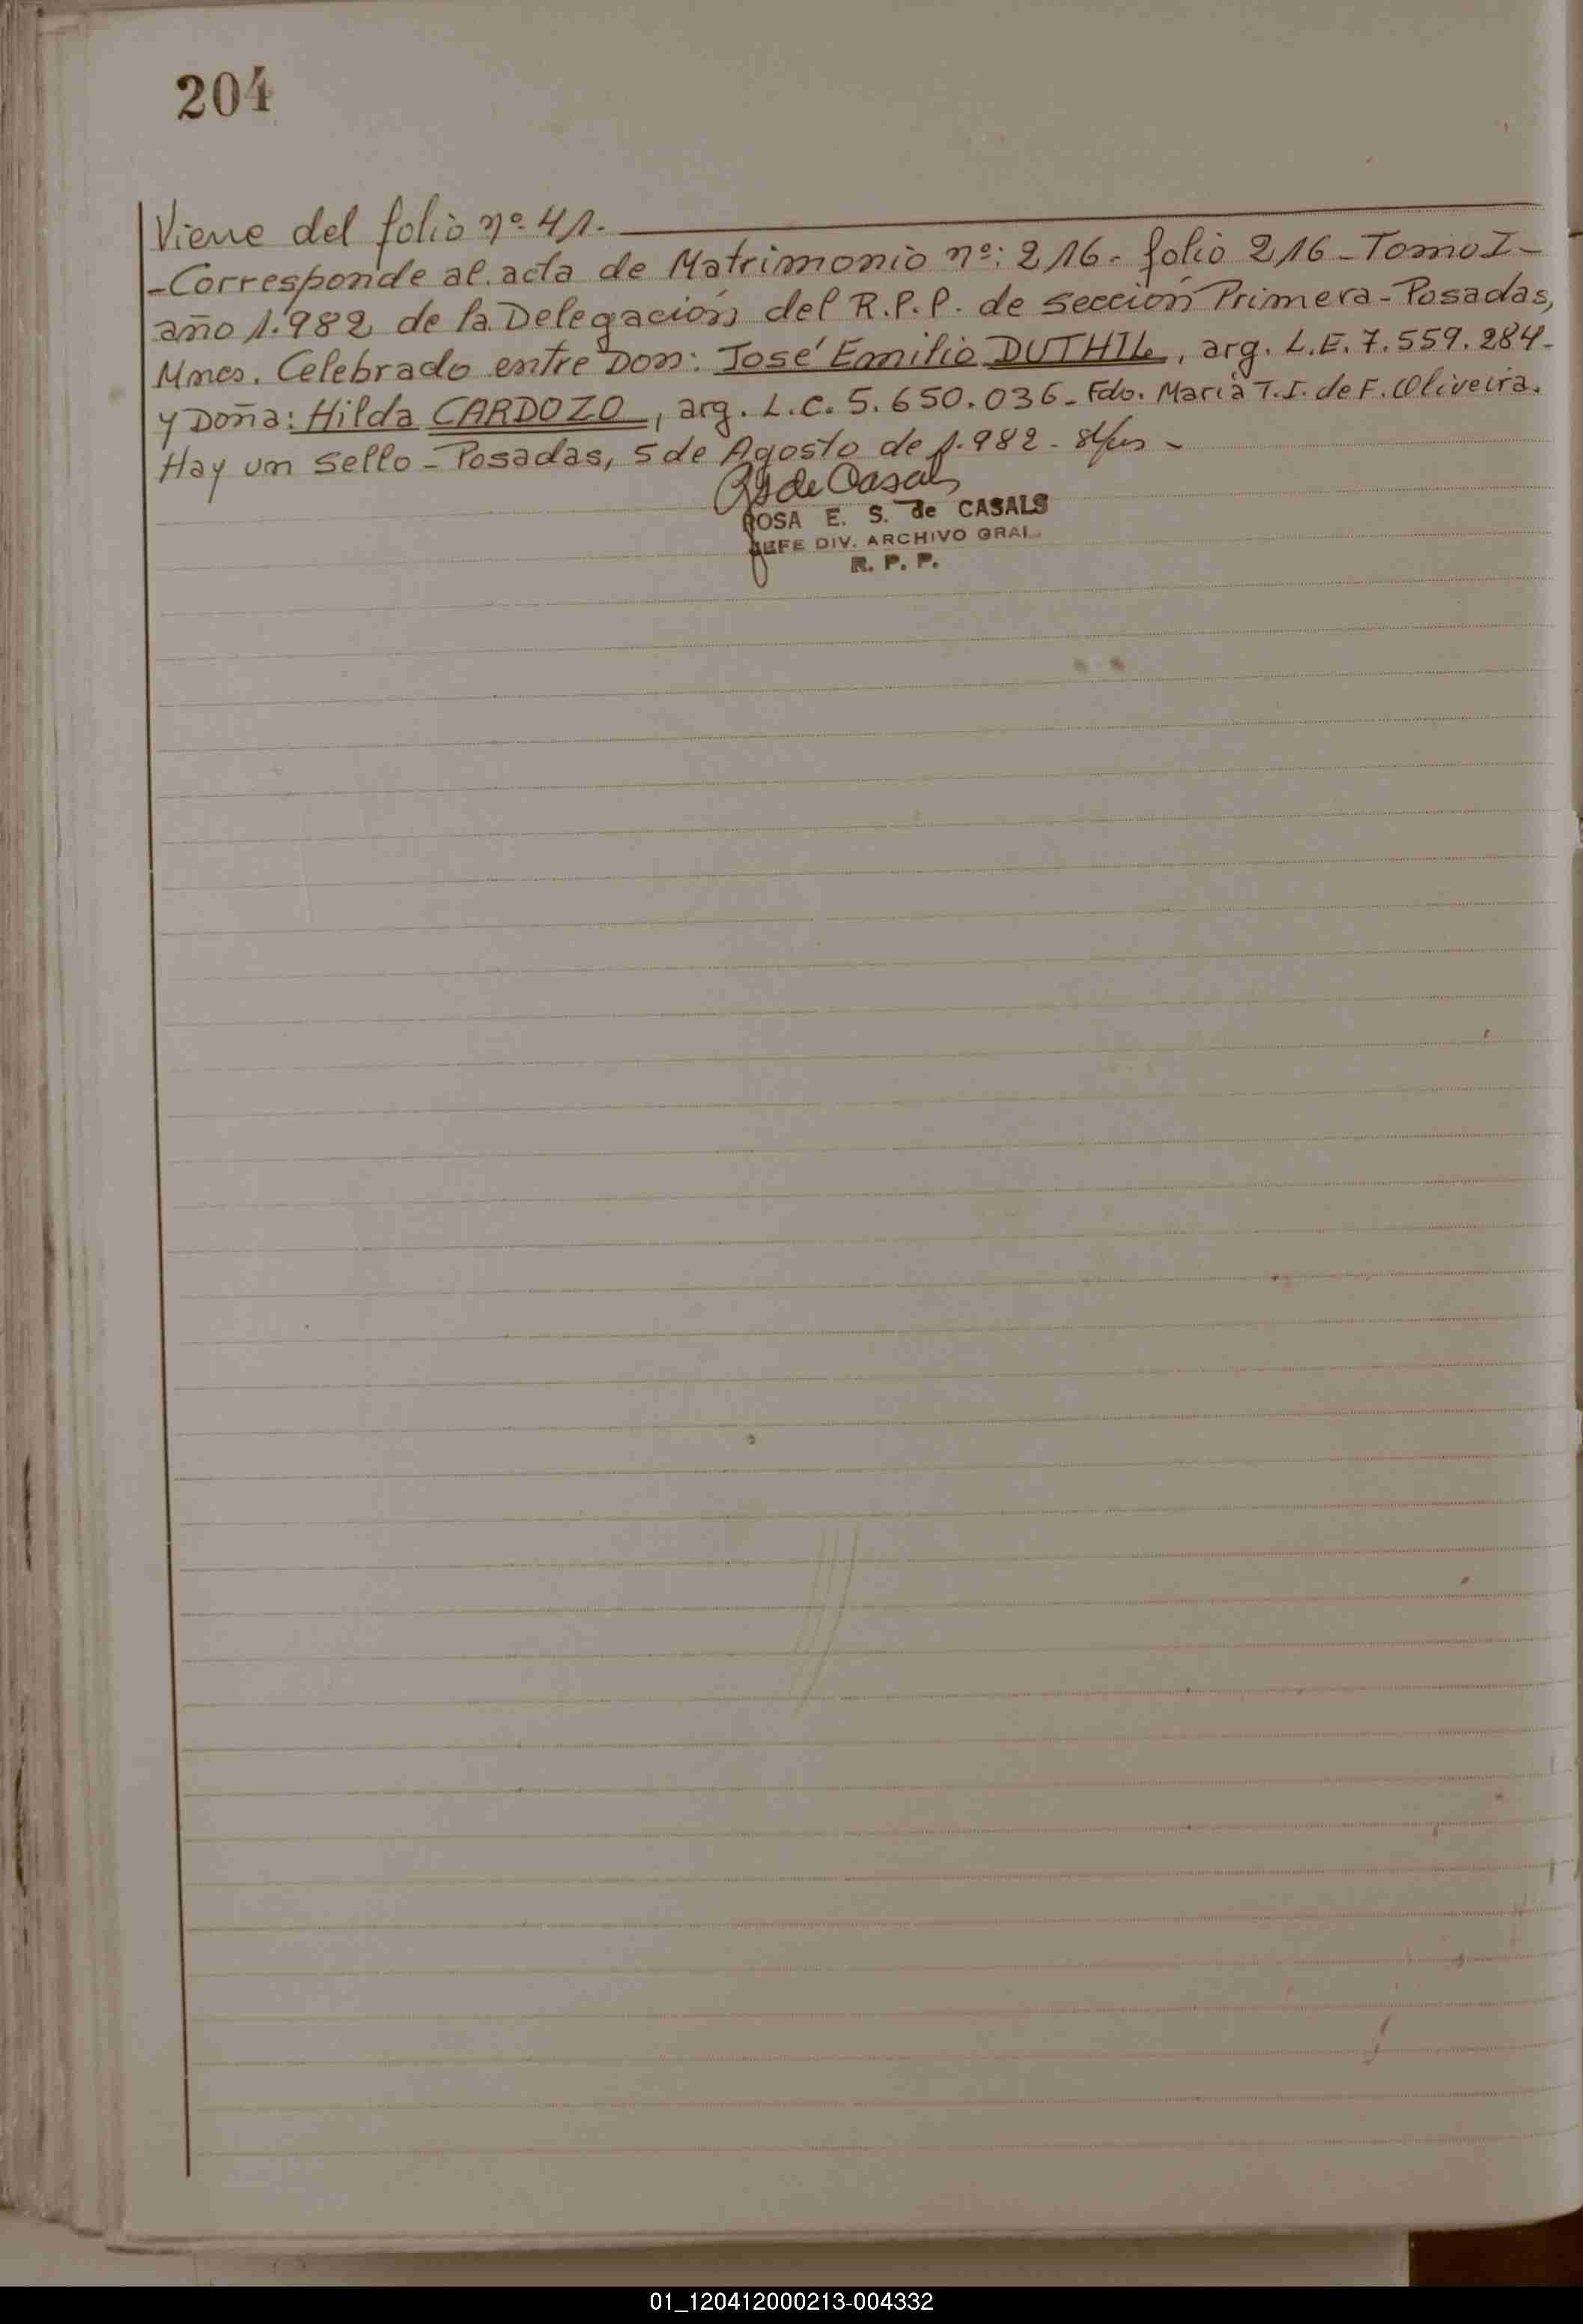 204
Viene del folio nº 41.
-Corresponde al acta de Matrimonio nº: 216- folio 216-Tomo I-
año 1.982 de la Delegación del R.P.P. de sección Primera-Posadas,
Mnes. Celebrado entre Don: José Emilio DUTHIL, arg. L.E. 7.559.284-
y Doña: Hilda CARDOZO, arg. L.C. 5.650.036- Fdo. María T.I. de F. Oliveira.
Hay un sello-Posadas, 5 de Agosto de 1.982-
RS de Casals
ROSA E. S. de CASALS
JEFE DIV. ARCHIVO GRAL.
R. P. P.
01_120412000213-004332